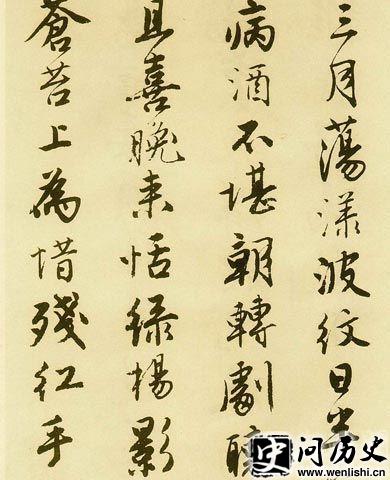 三月蕩漾波紋日
病酒不堪朝轉劇
且喜晚來恬綠楊影
蒼苔上為惜殘紅手
史 问历史
www.wenlishi.cn